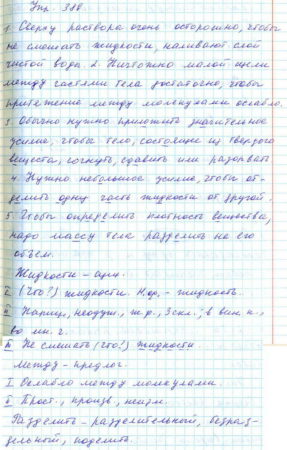 Упр. 388.
1. Сверху раствора очень осторожно, чтобы
не смешать жидкости, наливают слой
чистой воды. 2. Ничтожно малой щели
между частями тела достаточно, чтобы
притяжение между молекулами ослабло.
3. Обычно нужно приложить значительное
усилие, чтобы тело, состоящее из твёрдого
вещества, согнуть, сдавить или разорвать
4. Нужно небольшое усилие, чтобы от-
делить одну часть жидкости от другой.
5. Чтобы определить плотность вещества,
надо массу тела разделить на его
объём.
Жидкости - сущ.
I. (Что?) жидкости. Н.ф. - жидкость.
II. Нариц., неодуш., ж.р., 3 скл.; в вин. п.,
во мн. ч.
III. Не смешать (что?) жидкости.
Между - предлог.
I. Ослабло между молекулами.
II. Прост., произв., неизм.
Разделить - разделительный, безраз-
дельный, поделить.